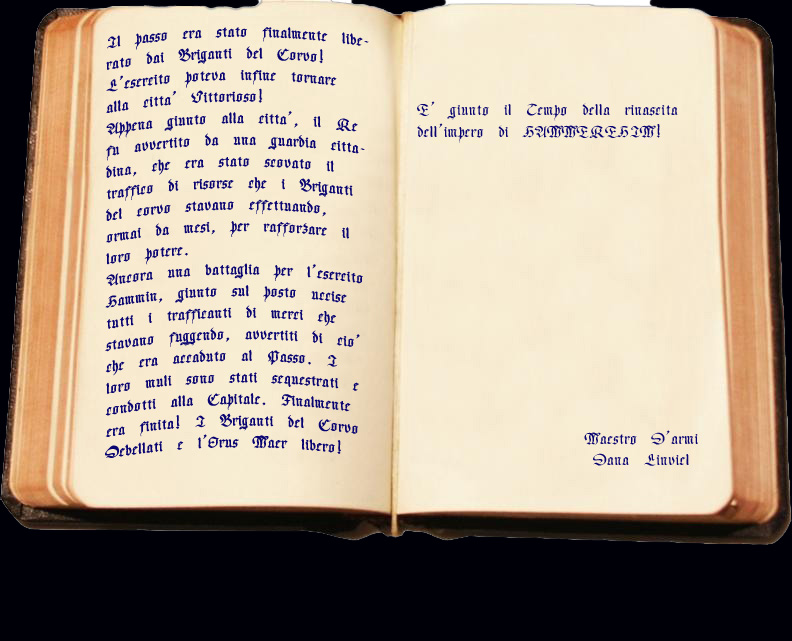 Il passo era stato finalmente libe-
rato dai Briganti del Corvo!
L'esercito poteva infine tornare
alla citta' Vittorioso!
Appena giunto alla citta', il Re
fu avvertito da una guardia citta-
dina, che era stato scovato il
traffico di risorse che i Briganti
del corvo stavano effettuando,
ormai da mesi, per rafforzare il
loro potere.
Ancora una battaglia per l'esercito
Hammin, giunto sul posto uccise
tutti i trafficanti di merci che
stavano fuggendo, avvertiti di cio'
che era accaduto al Passo. I
loro muli sono stati sequestrati e
condotti alla Capitale. Finalmente
era finita! I Briganti del Corvo
Debellati e l'Orus Maer libero!
E' giunto il Tempo della rinascita
dell'impero di HAMMEREHIM!
Maestro D'armi
Dana Linviel